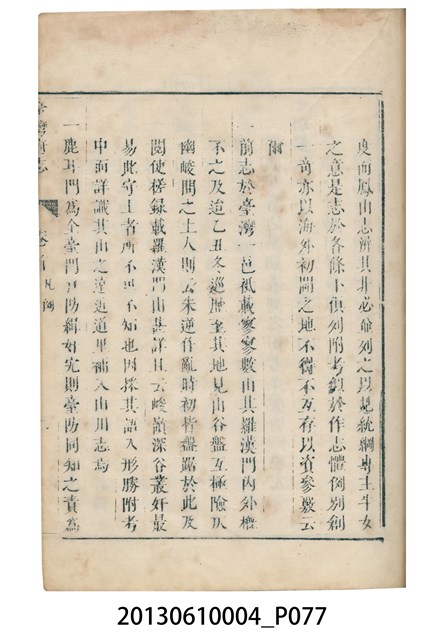 度而鳳山志辨其非必命列之以見統綱專主斗女
之意是志於各條下俱列附考似於作志體例別創
一奇亦以海外初闢之地不得不互存以資參覈云
爾
一前志於臺灣一邑祗載寥寥數山其羅漢門內外槪
不之及迨乙丑冬巡歷至其地見山谷盤互極險仄
幽峻問之土人則云朱逆作亂時初皆盤踞於此及
閱使槎錄載羅漢門山甚詳且云峻嶺深谷叢奸最
易此守土者所不可不知也因採其語入形勝附考
中而詳識其山之遠近道里補入山川志焉
一鹿耳門為全臺門戶防緝奸宄則臺防同知之責為
臺灣縣志
卷首
凡例
20130610004_P077